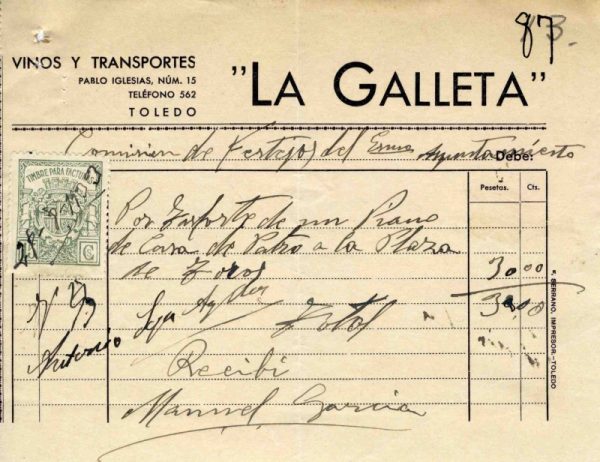 87
VINOS Y TRANSPORTES
PABLO IGLESIAS, NÚM. 15
TELÉFONO 562
TOLEDO
"LA GALLETA"
Comision de Festejos del Exmo Ayuntamiento
Debe:
TIMBRE PARA FACTURAS
Pesetas. Cts.
Por trasporte de un Piano
de Casa de Patro a la Plaza
de Toros 30.00
Total 30.00
Antonio
Recibi
Manuel Garcia
F. SERRANO, IMPRESOR-TOLEDO